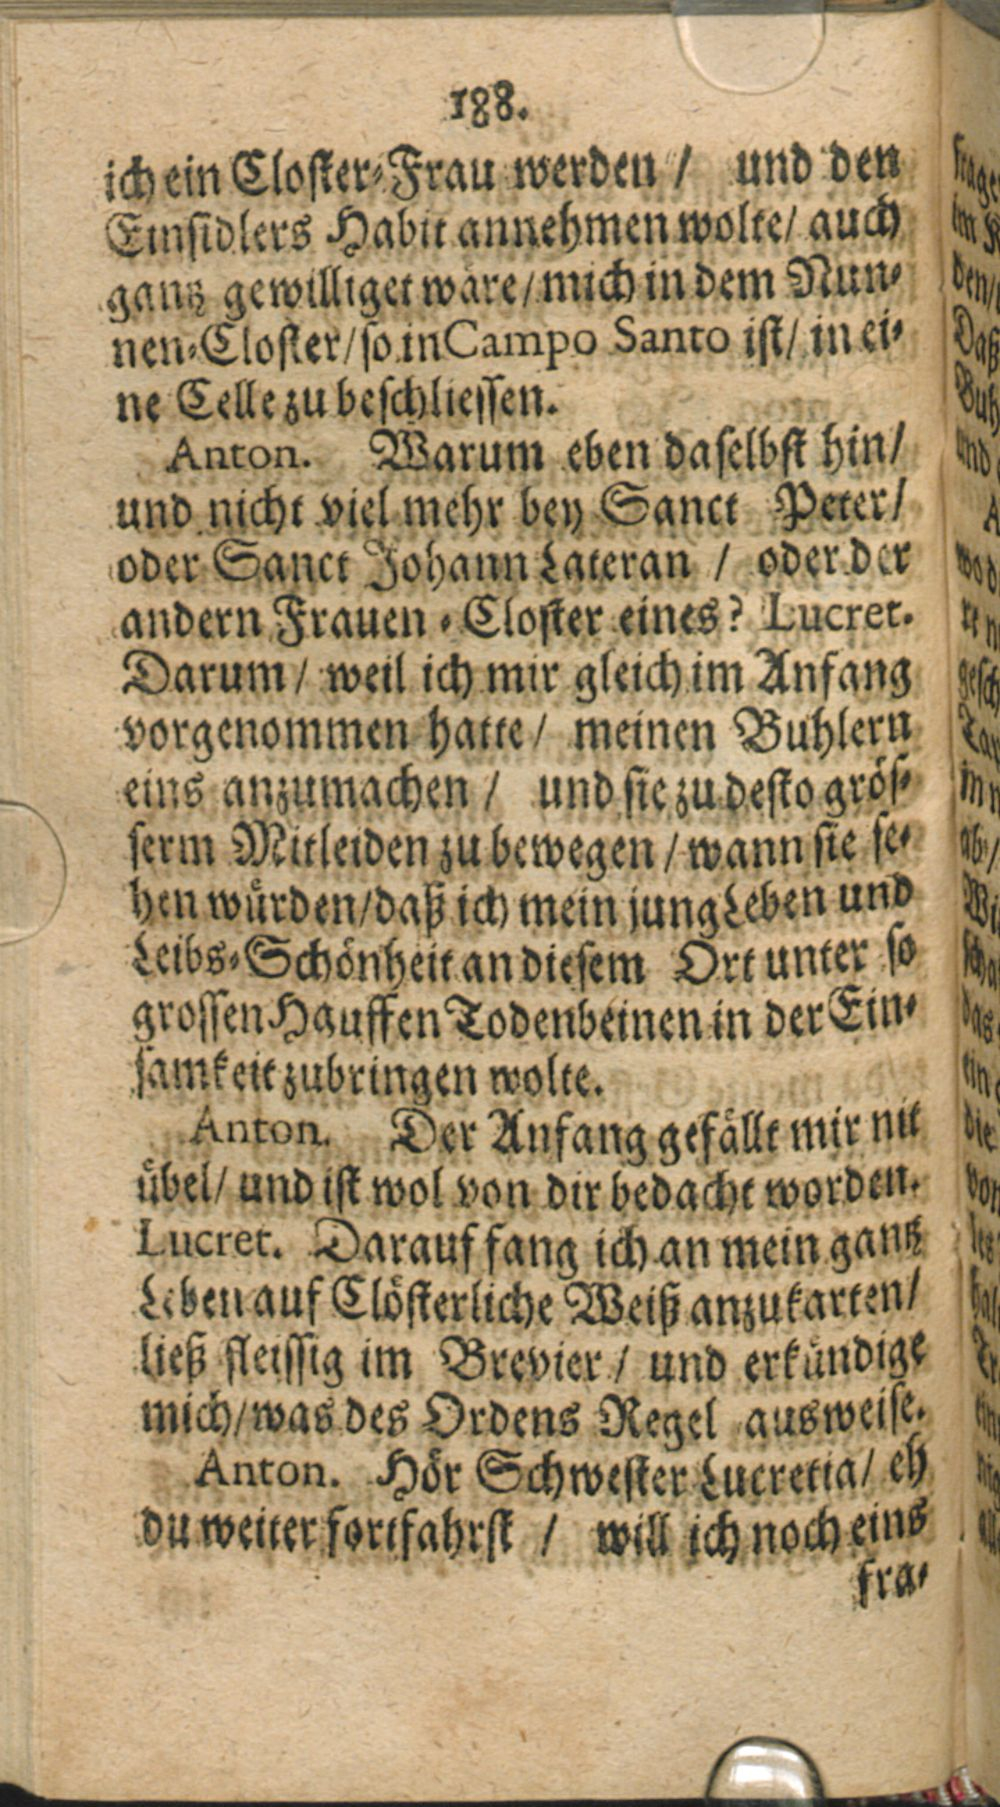 188.
ich ein Closter-Frau werden / und den
Einsidlers Habit annehmen wolte / auch
gantz gewilliget wäre / mich in dem Nun-
nen-Closter / so in Campo Santo ist / in ei-
ne Celle zu beschliessen.
Anton. Warum eben daselbst hin /
und nicht viel mehr bey Sanct Peter /
oder Sanct Johann Lateran / oder der
andern Frauen-Closter eines? Lucret.
Darum / weil ich mir gleich im Anfang
vorgenommen hatte / meinen Buhlern
eins anzumachen / und sie zu desto grös-
serm Mitleiden zu bewegen / wann sie se-
hen würden / daß ich mein jung Leben und
Leibs-Schönheit an diesem Ort unter so
grossen Hauffen Todenbeinen in der Ein-
samkeit zubringen wolte.
Anton. Der Anfang gefällt mir nit
übel / und ist wol von dir bedacht worden.
Lucret. Darauf fang ich an mein gantz
Leben auf Clösterliche Weiß anzukarten /
ließ fleissig im Brevier / und erkündige
mich / was des Ordens Regel ausweise.
Anton. Hör Schwester Lucretia / eh
du weiter fortfahrst / will ich noch eins
fra-